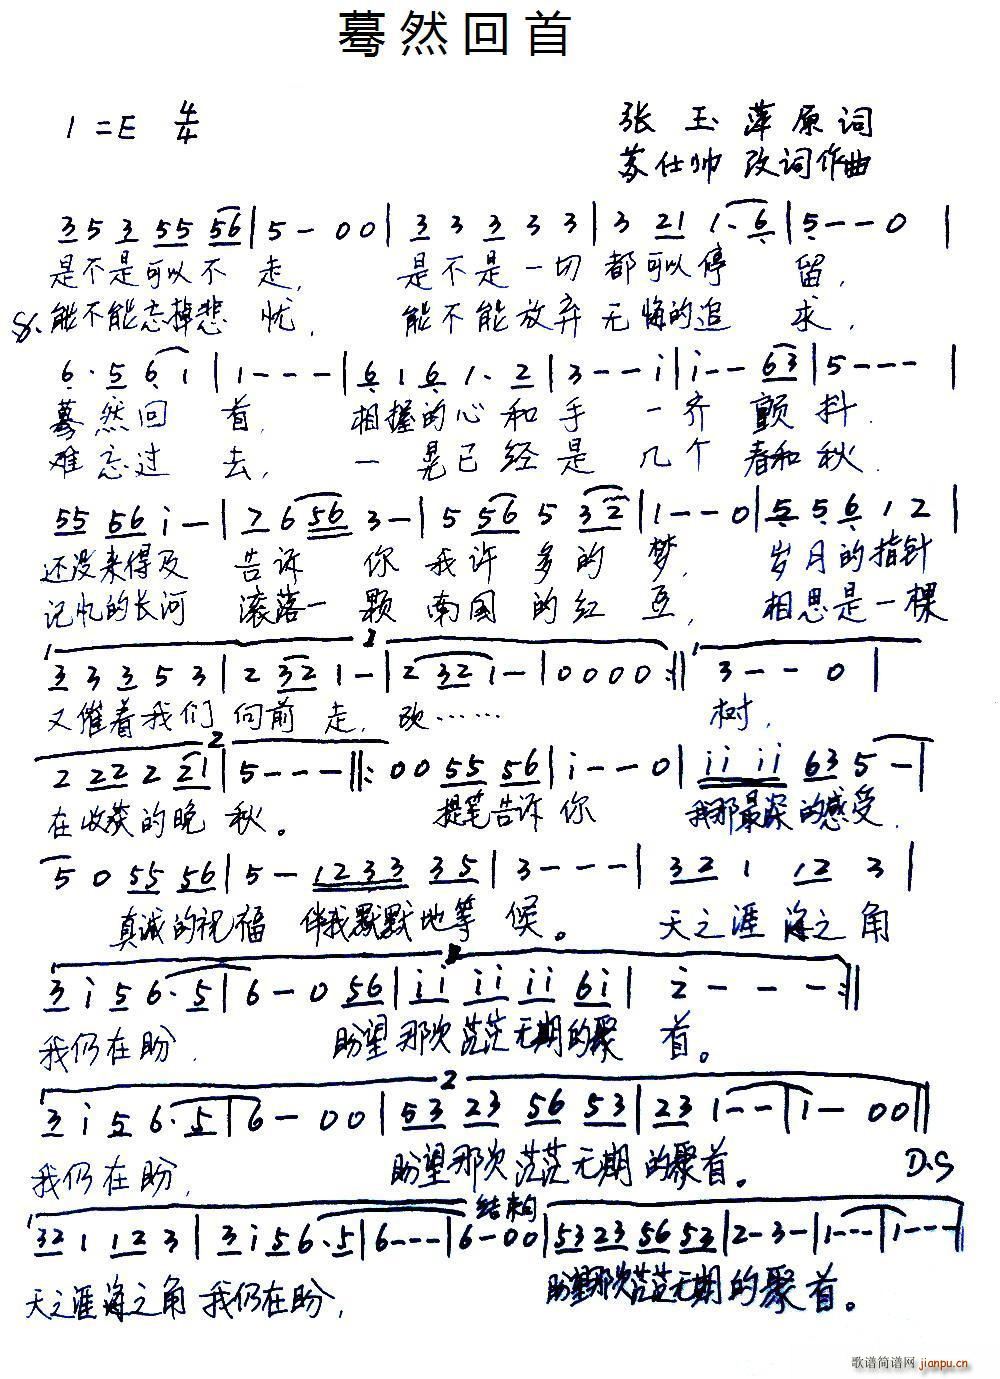 蓦然回首
1=E 4/4
张玉萍原词
苏仕帅 改词作曲
3 5 3 55 56 | 5 - 0 0 | 3 3 3 3 3 | 3 21 1. 6 | 5 - - - 0 |
是不是可以不走, 是不是一切都可以停留,
能不能忘掉悲忧, 能不能放弃无悔的追求,
6. 5 6 1 | 1 - - - | 6 1 6 1. 2 | 3 - - i | i - - 63 | 5 - - - |
蓦然回首, 相握的心和手一齐颤抖.
难忘过去, 一晃已经是几个春和秋.
55 56 i - | 7 6 56 3 - | 5 56 5 32 | 1 - - 0 | 5 5 6 1 2 |
还没来得及告诉你我许多的梦, 岁月的指针
记忆的长河滚落一颗南国的红豆, 相思是一棵
1
3 3 3 5 3 | 2 32 1 - | 2 32 1 - | 0 0 0 0 :|| 3 - - 0 |
又催着我们向前走, 改…… 树,
2
2 22 2 21 | 5 - - - ||: 0 0 55 56 | i - - 0 | ii ii 63 5 - |
在收获的晚秋。 提笔告诉你 我那最深的感受,
5 0 55 56 | 5 - 1233 35 | 3 - - - | 32 1 12 3 |
真诚的祝福 伴我默默地等候。 天之涯海之角
3 i 5 6. 5 | 6 - 0 56 | ii ii ii 6i | 2 - - - :||
我仍在盼, 盼望那次茫茫无期的聚首。
2
3 i 5 6. 5 | 6 - 0 0 | 53 23 56 53 | 23 1 - - | 1 - 0 0 ||
我仍在盼, 盼望那次茫茫无期的聚首。 D.S
结束句
32 1 12 3 | 3 i 5 6. 5 | 6 - - - | 6 - 0 0 | 53 23 56 53 | 2 - 3 - | 1 - - - | 1 - - - |
天之涯海之角我仍在盼, 盼望那次茫茫无期的聚首。
歌谱简谱网 jianpu.cn